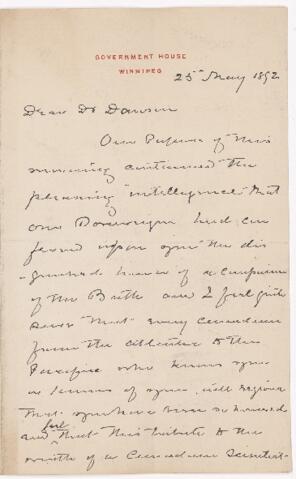 GOVERNMENT HOUSE
WINNIPEG
25th May 1892
Dear Dr Dawson
Our Papers of this
morning contained the
pleasing intelligence that
our Sovereign had con
ferred upon you the dis
-guished honor of a Companion
of the Bath and I feel quite
sure that every Canadian
from the Atlantic to the
Pacific who knows you
or knows of you will rejoice
that you have been so honored
and feel that this tribute to the
worth of a Canadian Scientist